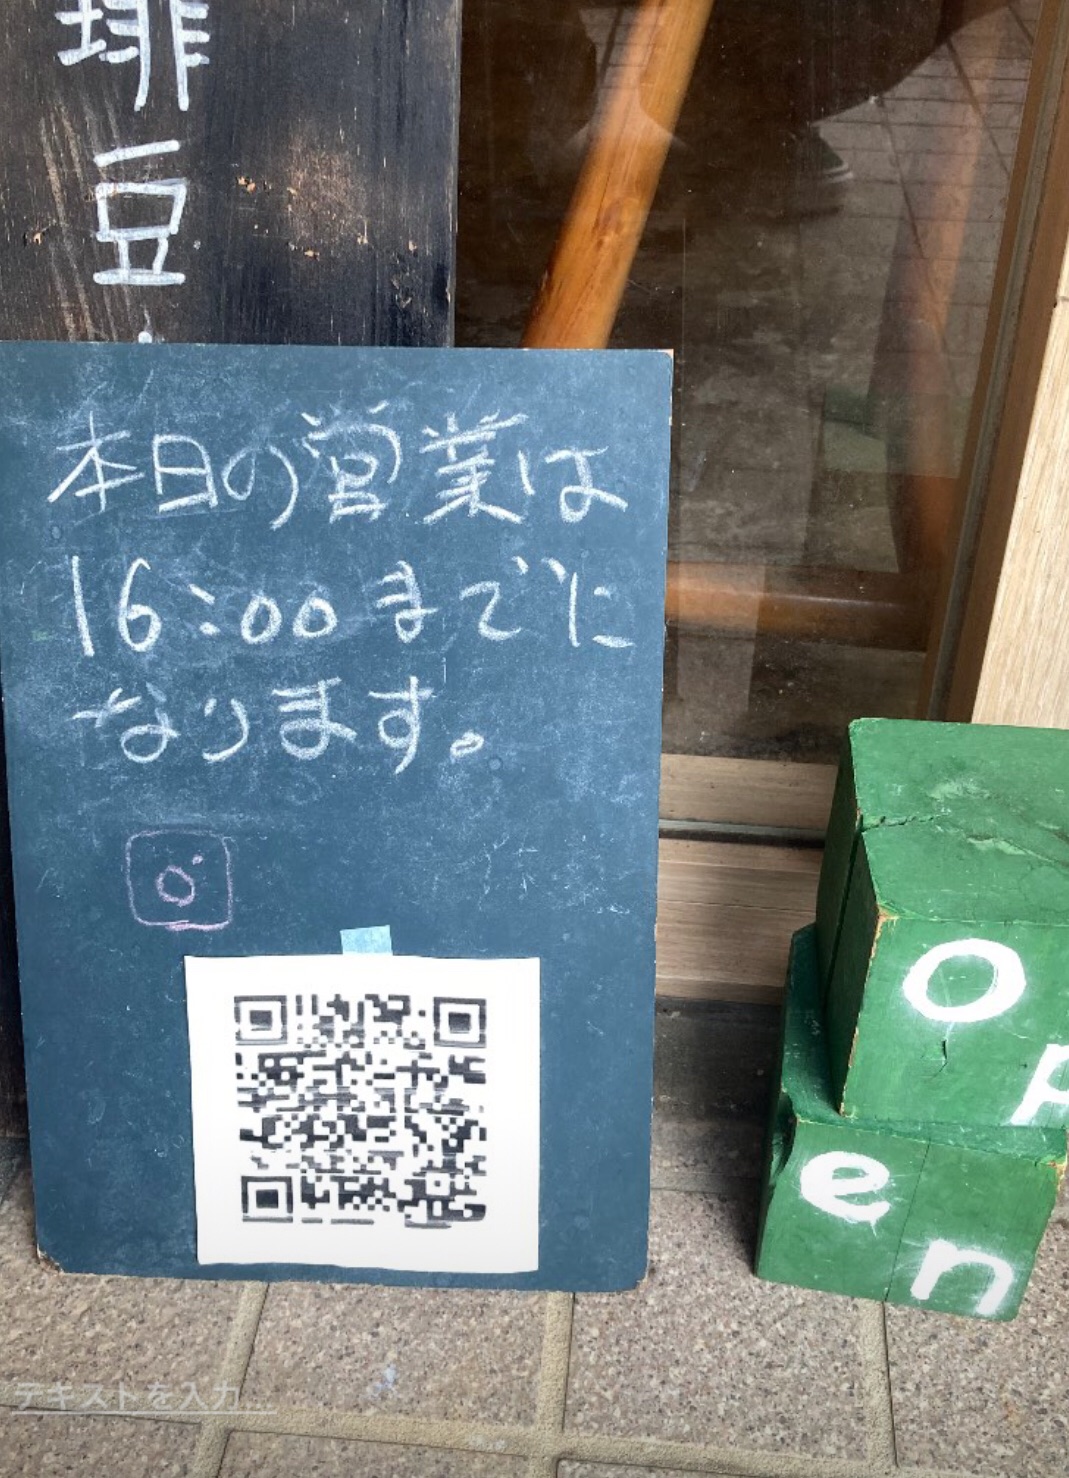 琲豆
本日の営業は
16:00までに
なります。
o
p
e
n
テキストを入力...